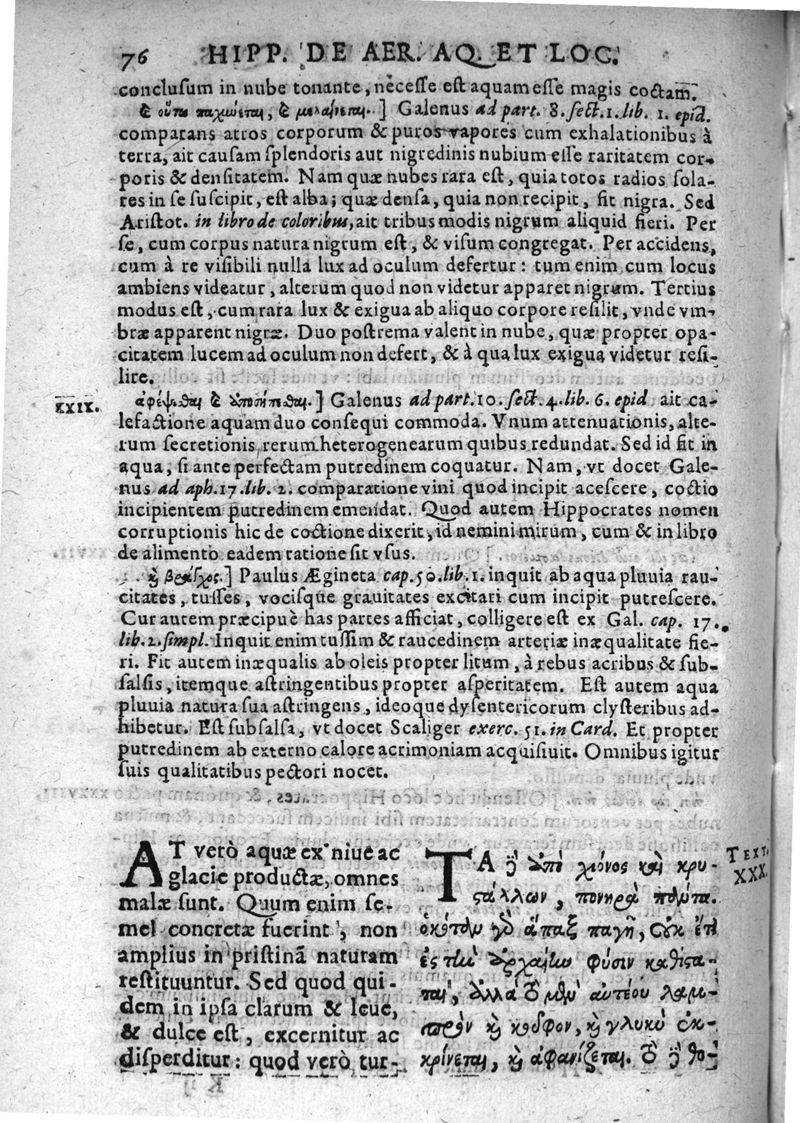 76 HIPP. DE AER. AQ. ET LOC.
conclusum in nube tonante, necesse est aquam esse magis coctam.
καὶ οὕτω παχύνεται, καὶ μελαίνεται.] Galenus ad part. 8. sect. 1. lib. 1. epid.
comparans atros corporum & puros vapores cum exhalationibus à
terra, ait causam splendoris aut nigredinis nubium esse raritatem cor-
poris & densitatem. Nam quæ nubes rara est, quia totos radios sola-
res in se suscipit, est alba; quæ densa, quia non recipit, fit nigra. Sed
Aristot. in libro de coloribus, ait tribus modis nigrum aliquid fieri. Per
se, cum corpus natura nigrum est, & visum congregat. Per accidens,
cum à re visibili nulla lux ad oculum defertur: tum enim cum locus
ambiens videatur, alterum quod non videtur apparet nigrum. Tertius
modus est, cum rara lux & exigua ab aliquo corpore resilit, vnde vm-
bræ apparent nigræ. Duo postrema valent in nube, quæ propter opa-
citatem lucem ad oculum non defert, & à qua lux exigua videtur resi-
lire.
XXIX. ἀφέψεσθαι καὶ ἀποσήπεσθαι.] Galenus ad part. 10. sect. 4. lib. 6. epid ait ca-
lefactione aquam duo consequi commoda. Vnum attenuationis, alte-
rum secretionis rerum heterogenearum quibus redundat. Sed id fit in
aqua, si ante perfectam putredinem coquatur. Nam, vt docet Gale-
nus ad aph. 17. lib. 2. comparatione vini quod incipit acescere, coctio
incipientem putredinem emendat. Quod autem Hippocrates nomen
corruptionis hic de coctione dixerit, id nemini mirum, cum & in libro
de alimento eadem ratione sit vsus.
καὶ βράγχος.] Paulus Ægineta cap. 50. lib. 1. inquit ab aqua pluuia rau-
citates, tusses, vocisque grauitates excitari cum incipit putrescere.
Cur autem præcipuè has partes afficiat, colligere est ex Gal. cap. 17.
lib. 2. simpl. Inquit enim tussim & raucedinem arteriæ inæqualitate fie-
ri. Fit autem inæqualis ab oleis propter litum, à rebus acribus & sub-
salsis, itemque astringentibus propter asperitatem. Est autem aqua
pluuia natura sua astringens, ideoque dysentericorum clysteribus ad-
hibetur. Est subsalsa, vt docet Scaliger exerc. 51. in Card. Et propter
putredinem ab externo calore acrimoniam acquisiuit. Omnibus igitur
suis qualitatibus pectori nocet.
AT verò aquæ ex niue ac
glacie productæ, omnes
malæ sunt. Quum enim se-
mel concretæ fuerint, non
amplius in pristinā naturam
restituuntur. Sed quod qui-
dem in ipsa clarum & leue,
& dulce est, excernitur ac
disperditur: quod verò tur-
ΤΑ δὲ ἀπὸ χιόνος καὶ κρυ-
στάλλων, πονηρὰ πάντα.
ὁκόταν γὰρ ἅπαξ παγῇ, οὐκ ἔτι
ἐς τὴν ἀρχαίην φύσιν καθίστα-
ται, ἀλλὰ τὸ μὲν αὐτέου λαμ-
πρὸν καὶ κοῦφον, καὶ γλυκὺ ἐκ-
κρίνεται, καὶ ἀφανίζεται. τὸ δὲ θο-
TEXT.
XXX.